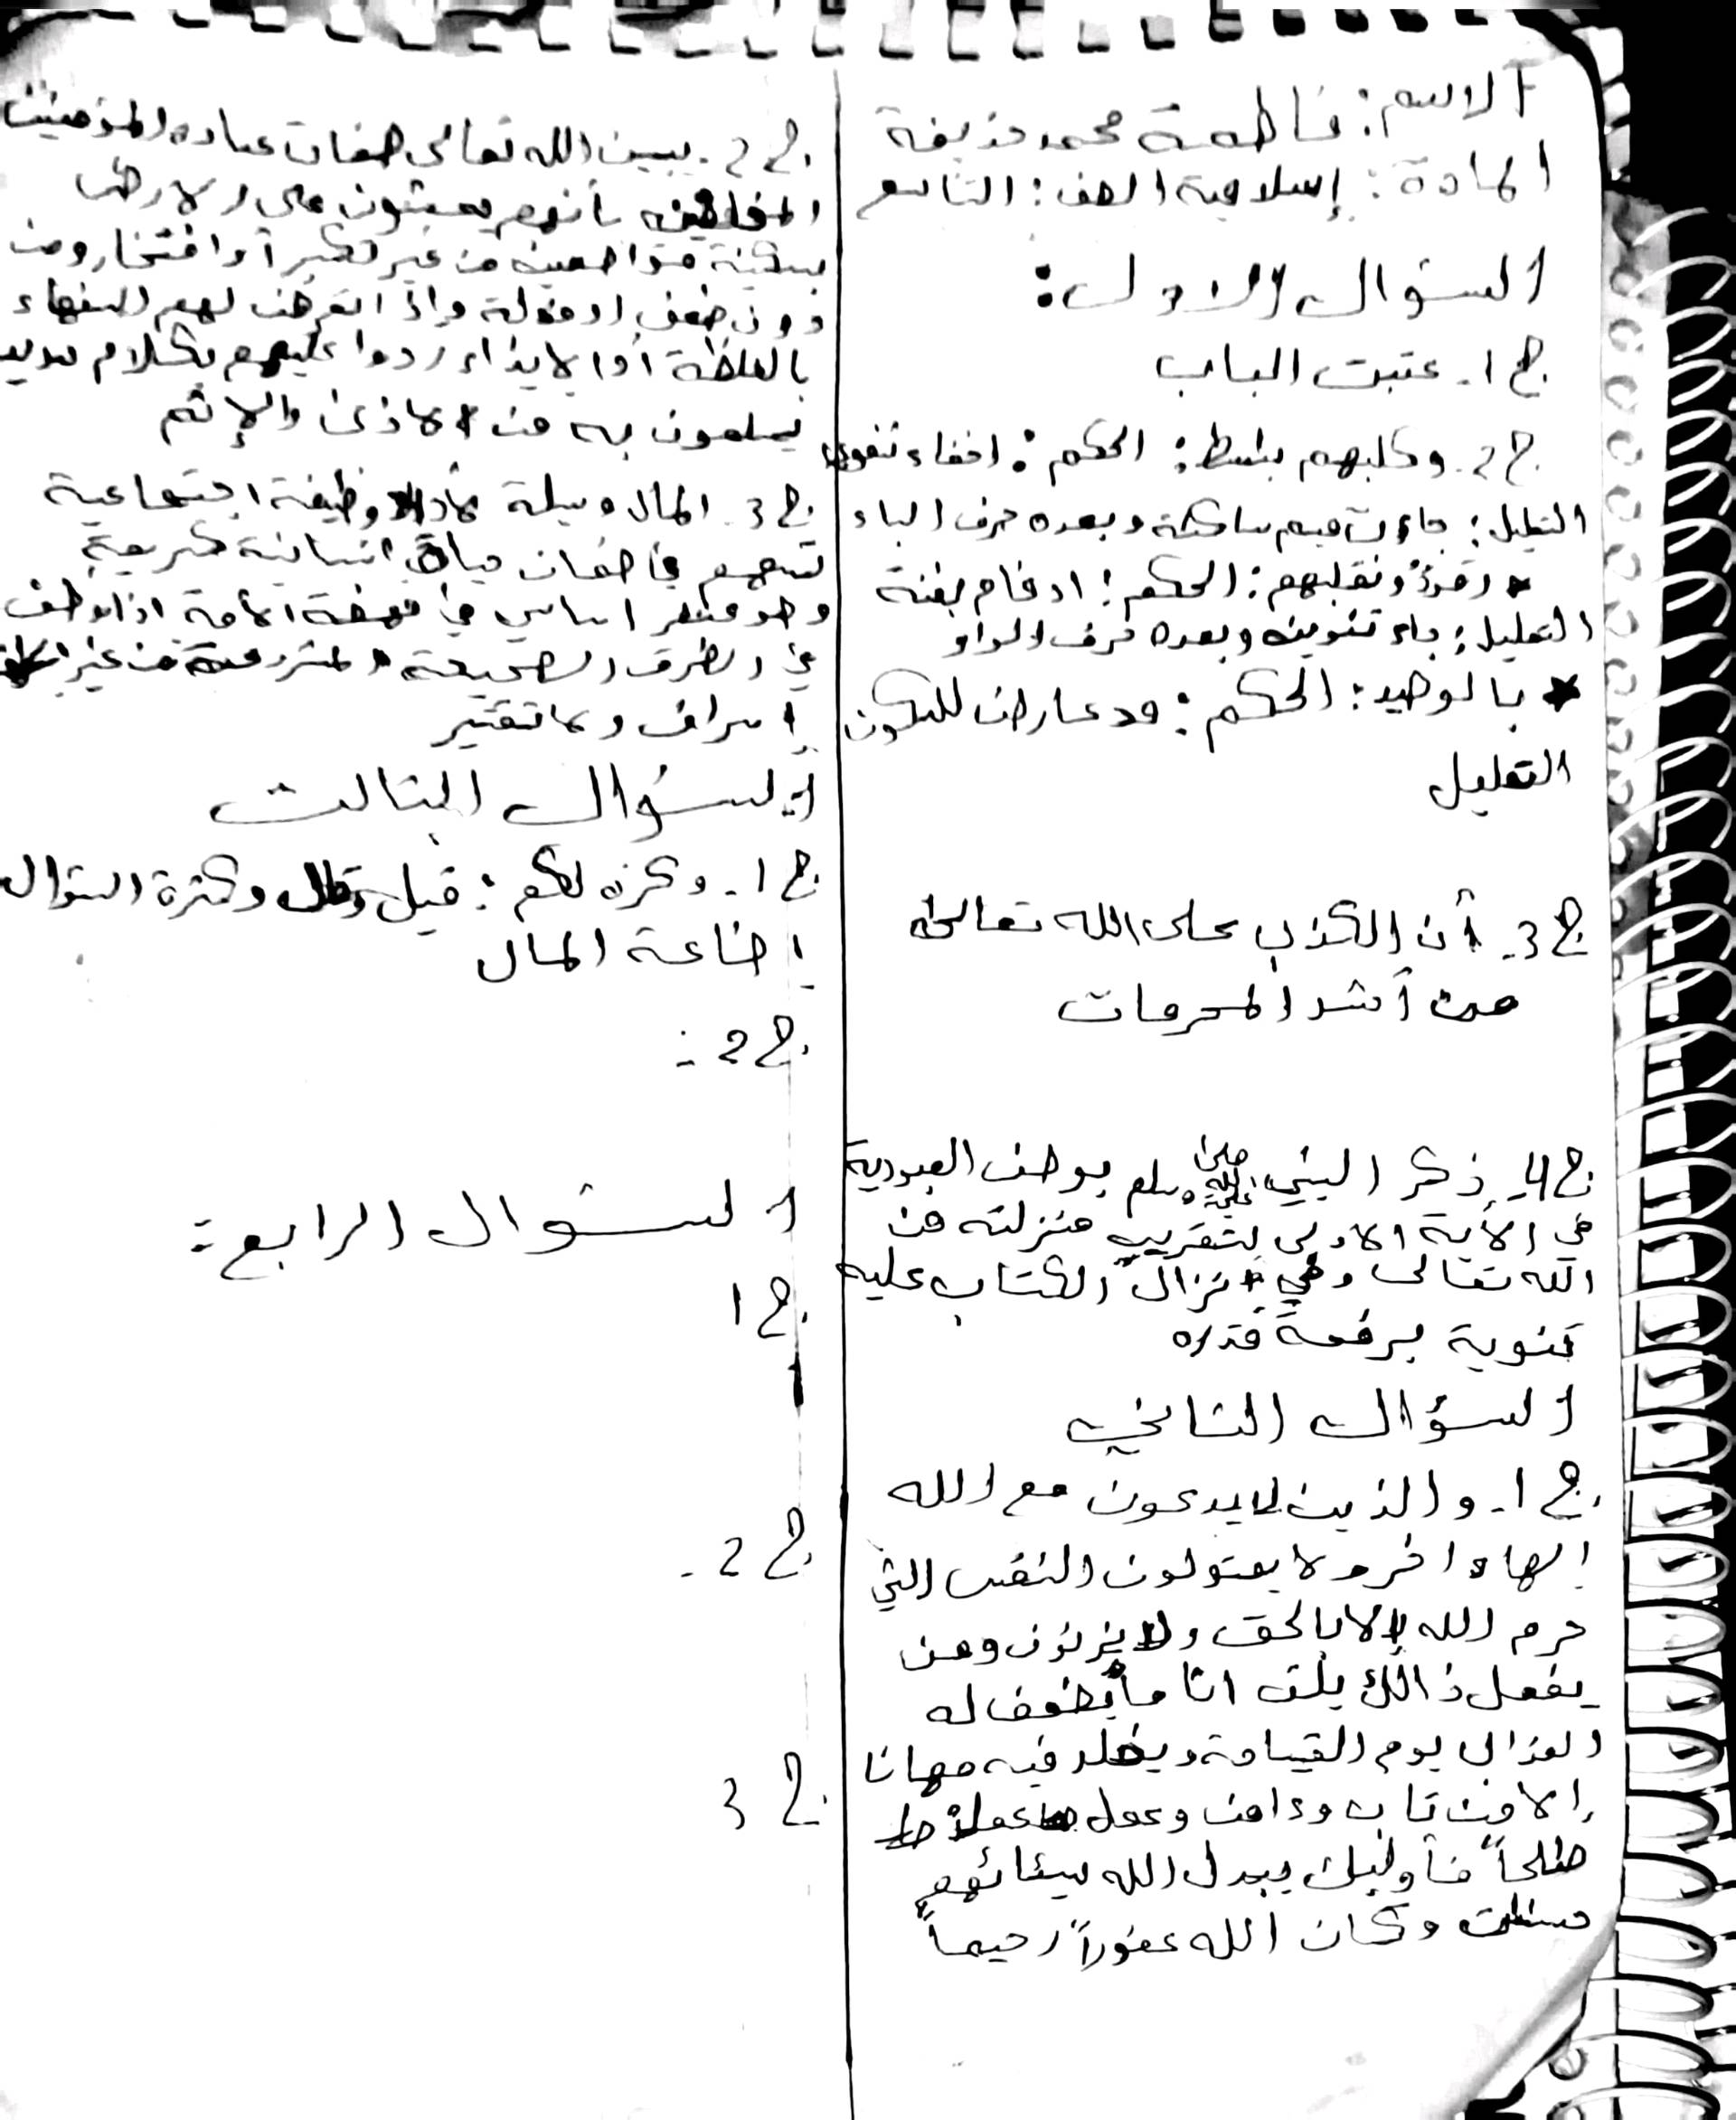 الاسم: فاطمة محمد حذيفة
المادة: إسلامية الصف: التاسع
السؤال الاول:
ج1. عتبت الباب
ج2. وكلبهم باسط: الحكم: اخفاء شفوي
التعليل: جاءت ميم ساكنة وبعده حرف الباء
* رقودٌ ونقلبهم: الحكم: ادغام بغنة
التعليل: جاء تنوين وبعده حرف الواو
* بالوصيد: الحكم: مد عارض للسكون
التعليل
ج3. أن الكذب على الله تعالى
من أشد المحرمات
ج4. ذكر النبي صلى الله عليه وسلم بوصف العبودية
في الأية الاولى لتقريب منزلته من
الله تعالى وفي انزال الكتاب عليه
تنوية برفعة قدره
السؤال الثاني
ج1. والذين لايدعون مع الله
إلهاء اخر ولا يقتولون النفس التي
حرم الله إلا بالحق ولا يزنون ومن
يفعل ذالك يلق اثاما يضعف له
العذاب يوم القيامة ويخلد فيه مهانا
إلا من تاب وءامن وعمل عملاً
صلحاً فأوليك يبدل الله سيئاتهم
حسنات وكان الله غفوراً رحيماً
ج2. يبين الله تعالى صفات عباده المؤمنين
المخلصين بأنهم يمشون على الارض
بسكينة متواضعين من غير تكبر أو افتخار ومن
دون ضعف او مذلة وإذا اتعرض لهم السفهاء
بالغلظة أوا لايذاء ردوا عليهم بكلام
يسلمون به من الاذى والإثم
ج3. المال وسيلة وظيفة اجتماعية
تسهم في حياة انسانية كريمة
وهو عنصر اساسي في نهضة الأمة اذا وظف
في الطرق الصحيحة المشروعة من غير
إسراف ولا تقتير
السؤال الثالث
ج1. وكره لكم: قيل وقال وكثرة السؤال
إضاعة المال
ج2:
السؤال الرابع:
ج1
ج2.
ج3